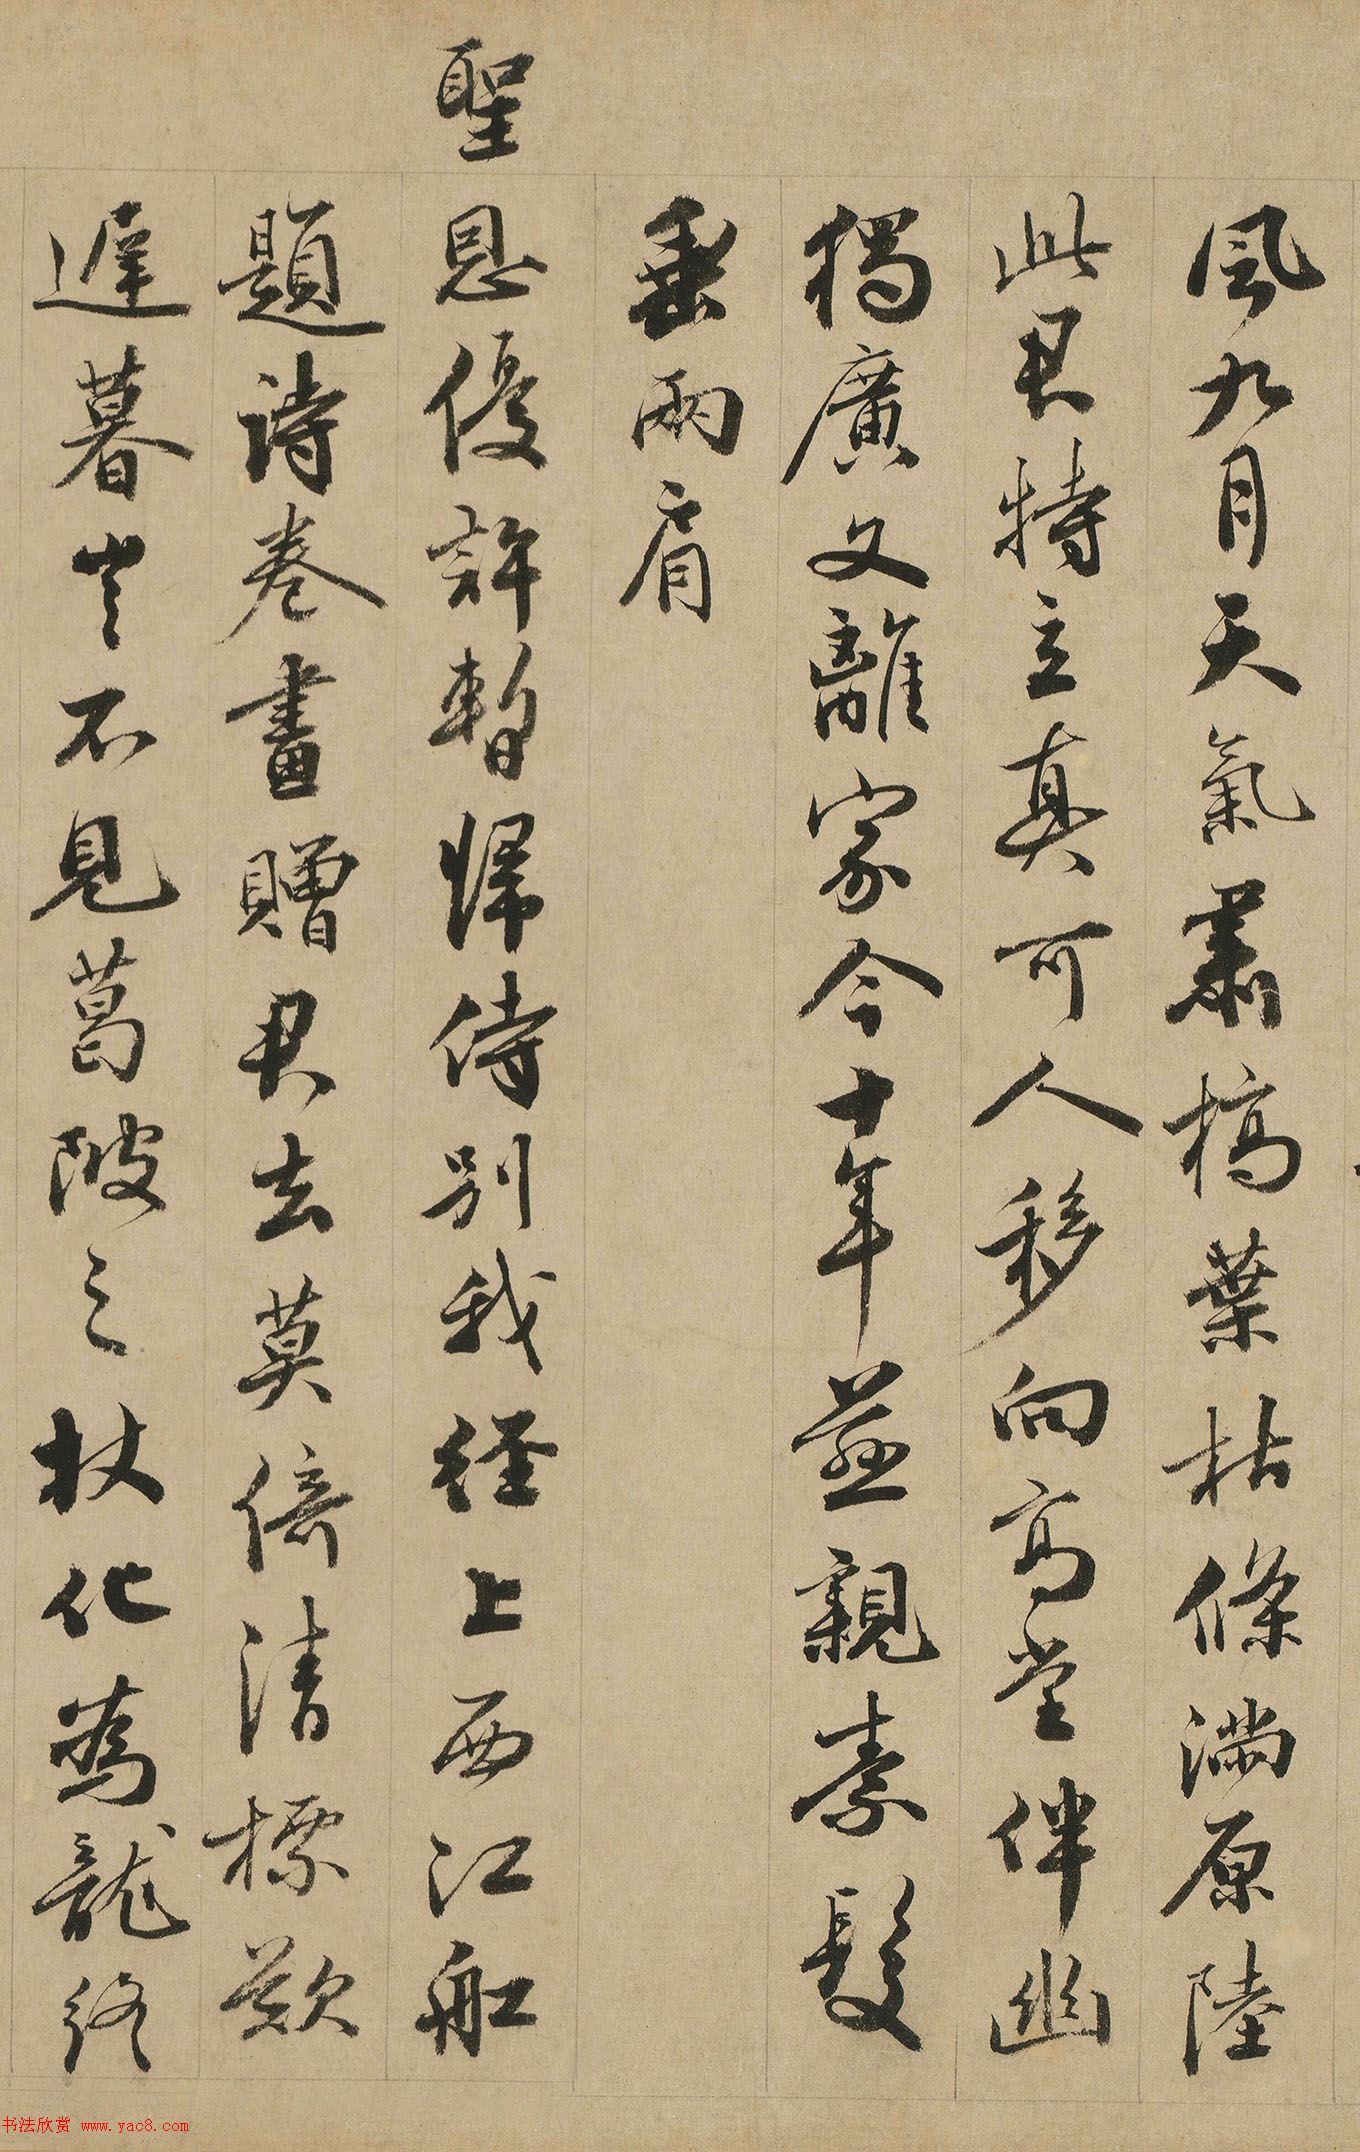 風九月天氣肅槁葉枯條满原陸
此君特立真可人移向高堂伴幽
獨廣文離家今十年慈親素髮
垂兩肩
聖恩優許暫歸侍別我經上西江舡
題詩卷畫贈君去莫倚清標歎
遲暮豈不見葛陂之杖化為龍終
书法欣赏 www.yac8.com